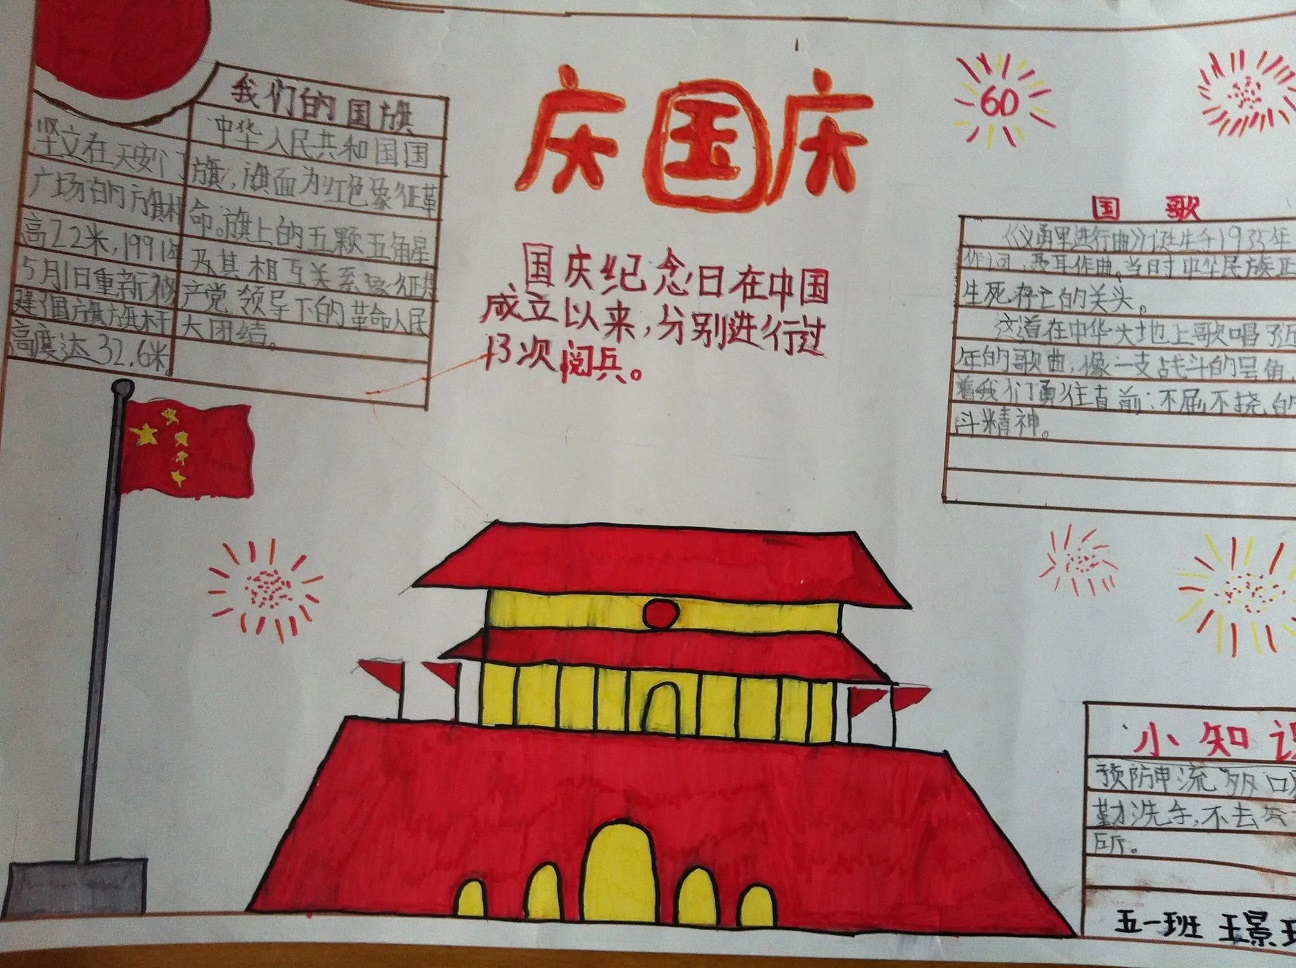 庆国庆
60
我们的国旗
中华人民共和国国
旗，旗面为红色象征革
命。旗上的五颗五角星
及其相互关系象征共
产党领导下的革命人民
大团结。
坚立在天安门
广场的方旗杆
高22米，1991年
5月1日重新被
建
高度达32.6米
国庆纪念日在中国
成立以来，分别进行过
13次阅兵。
国歌
《义勇军进行曲》诞生于1935年
作词，聂耳作曲，当时中华民族正
生死存亡的关头。
这道在中华大地上歌唱了近
年的歌曲，像一支战斗的号角，
着我们勇往直前：不屈不挠，的
斗精神。
小知识
预防甲流，多
勤洗手，不去
所。
五一班 王景